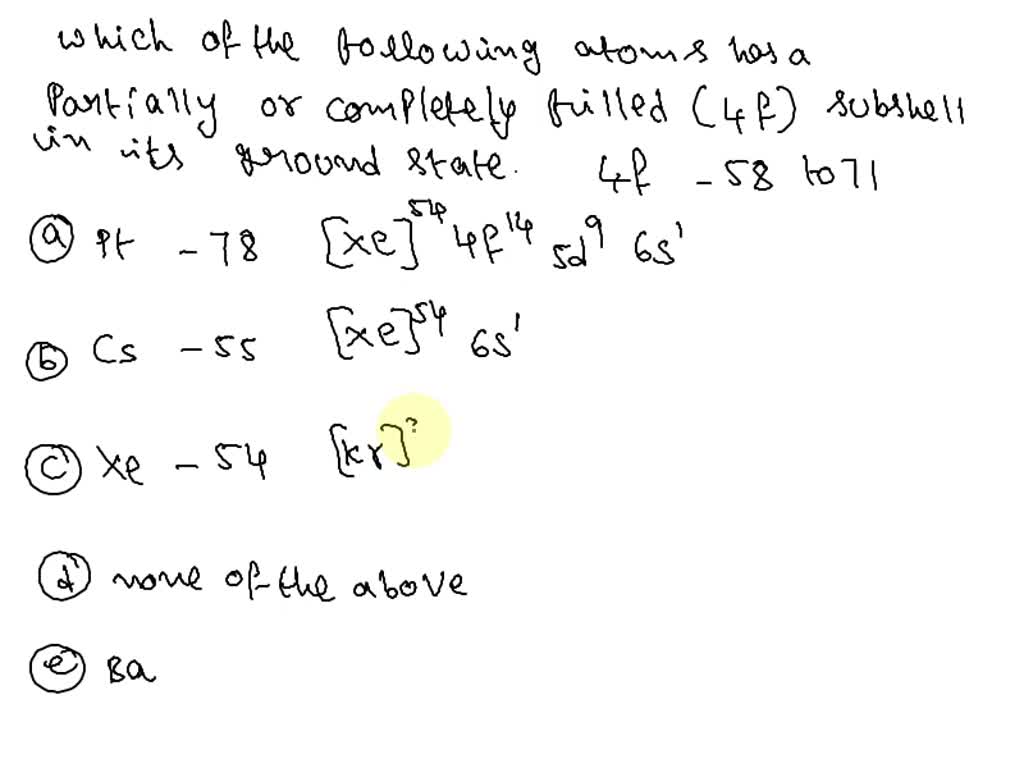 which of the following atoms has a
Partially or completely filled (4f) subshell
in its ground state. 4f - 58 to 71
(a) Pt - 78 [Xe]⁵⁴ 4f¹⁴ 5d⁹ 6s¹
(b) Cs - 55 [Xe]⁵⁴ 6s¹
(c) Xe - 54 [Kr]³
(d) none of the above
(e) Ba